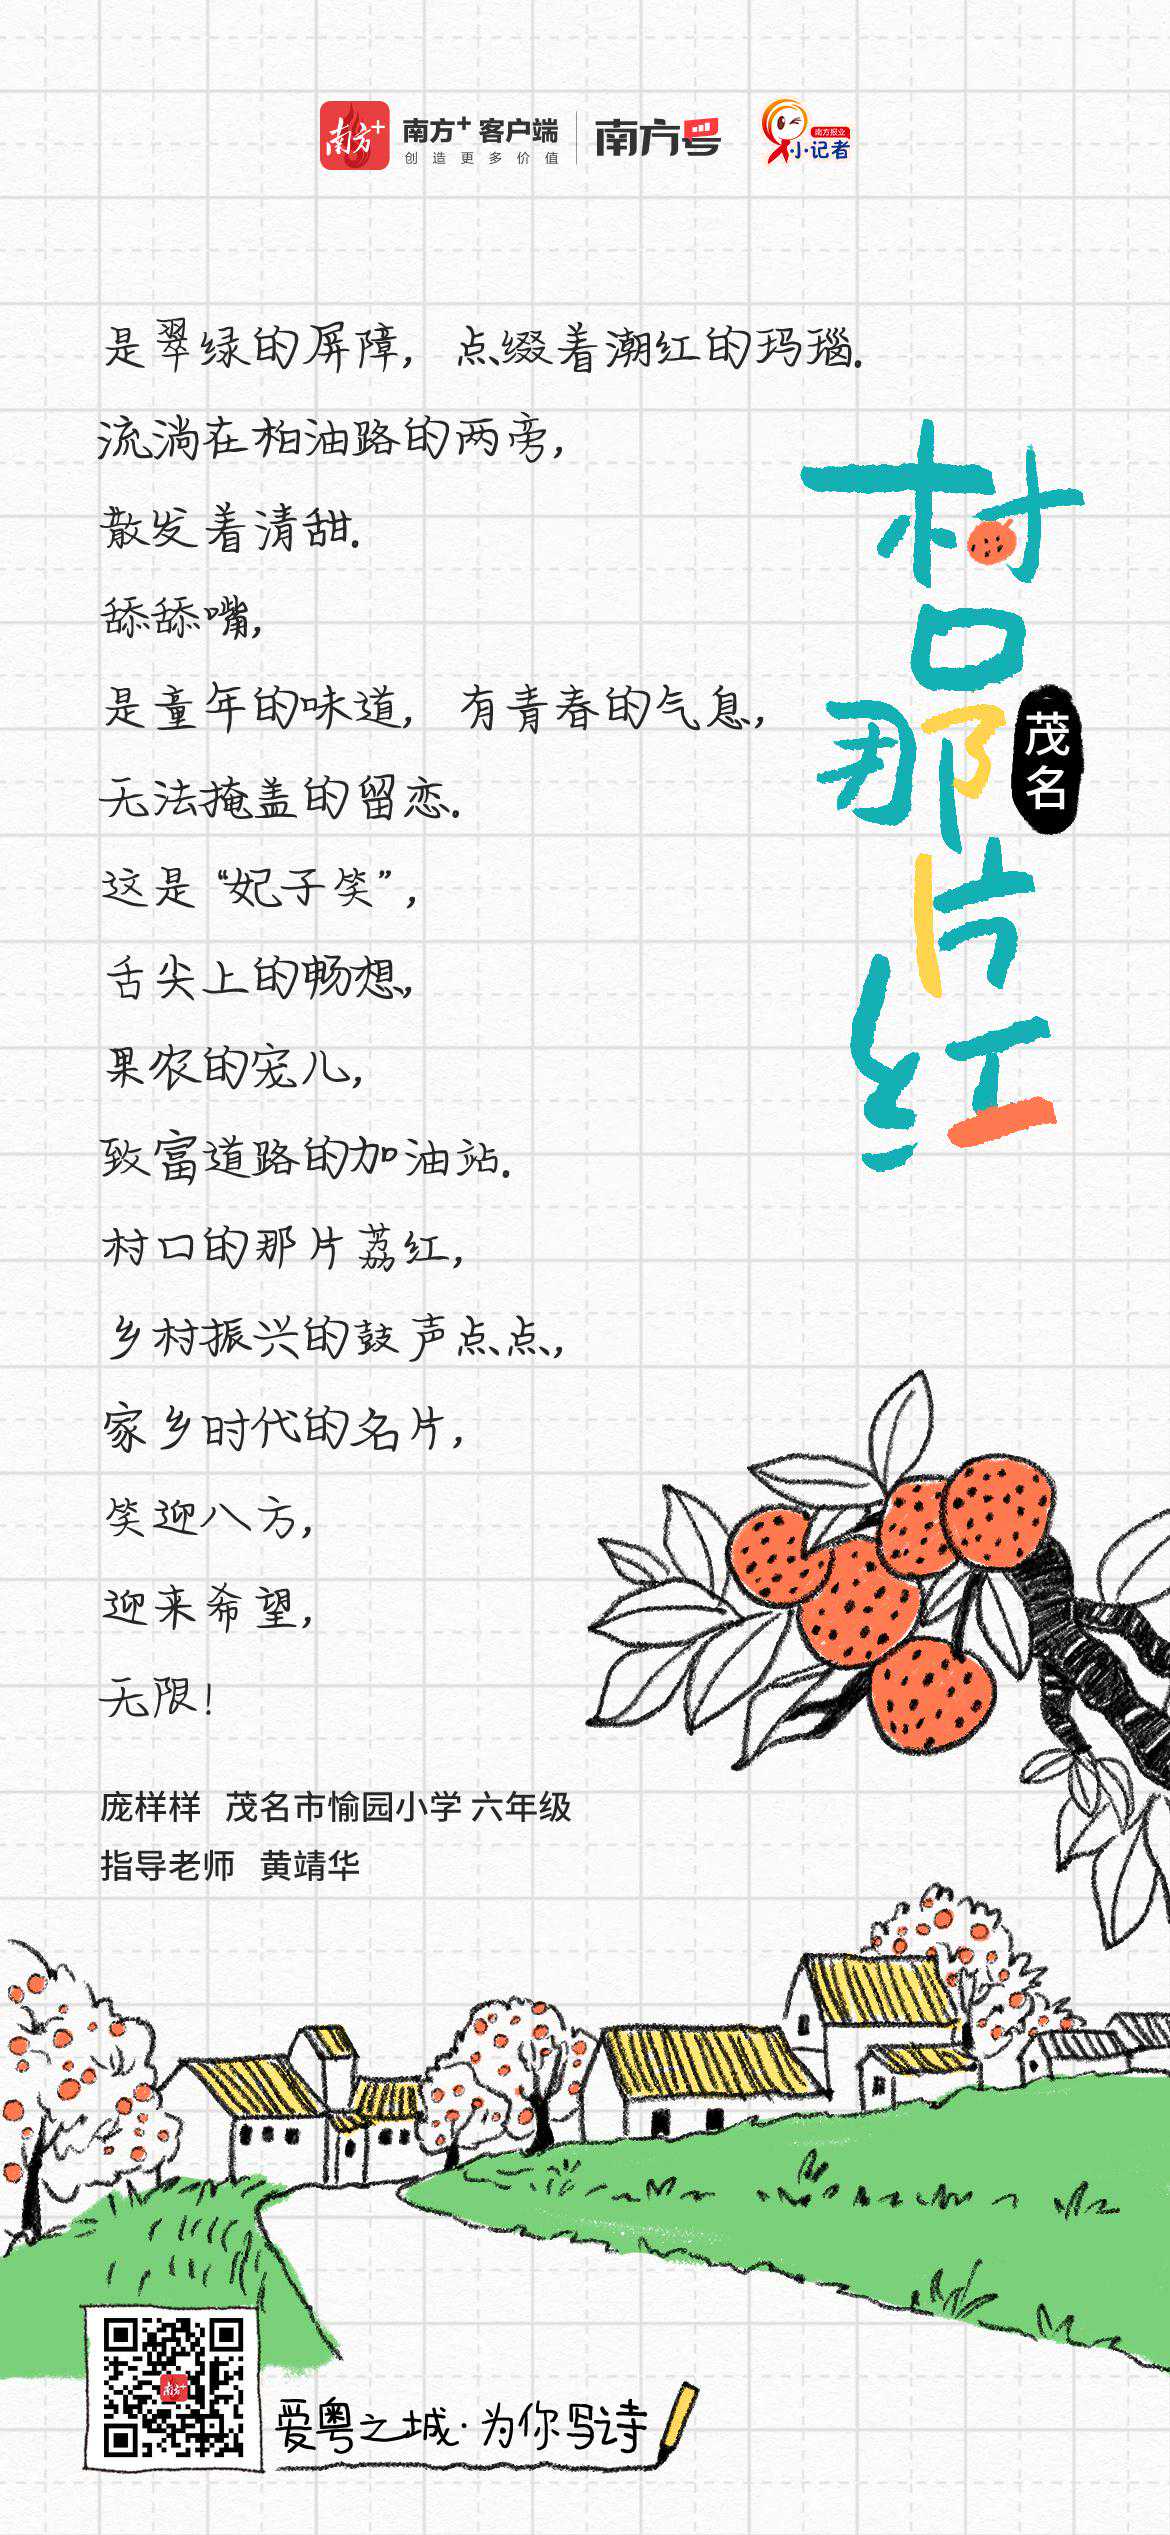 南方+
南方+ 客户端
创造更多价值
南方号
南方报业
小记者
村口那片红
茂名
是翠绿的屏障，点缀着潮红的玛瑙.
流淌在柏油路的两旁，
散发着清甜.
舔舔嘴，
是童年的味道，有青春的气息，
无法掩盖的留恋.
这是“妃子笑”，
舌尖上的畅想，
果农的宠儿，
致富道路的加油站.
村口的那片荔红，
乡村振兴的鼓声点点，
家乡时代的名片，
笑迎八方，
迎来希望，
无限！
庞样样 茂名市愉园小学 六年级
指导老师 黄靖华
南方+
爱粤之城·为你写诗